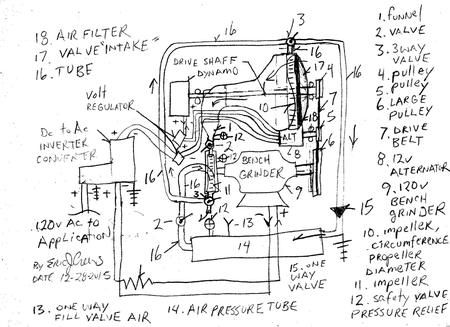 18. AIR FILTER
17. VALVE "INTAKE"
16. TUBE
16
3
16
17
4
DRIVE SHAFF
DYNAMO
10
16
Volt
REGULATOR
7
18
5
Dc to Ac
INVERTER
CONVERTER
ALT
6
2
1
12
12
8
BENCH
GRINDER
16
16
11
9
3
12
2
2
120v Ac to
Application
16
Y-13
15
14
By
DATE 12-28-2015
15. ONE WAY
VALVE
13. ONE WAY
FILL VALVE AIR
14. AIR PRESSURE TUBE
1. funnel
2. VALVE
3. 3way
VALVE
4. pulley
5. pulley
6. LARGE
PULLEY
7. DRIVE
BELT
8. 12v
ALTERNATOR
9. 120v
BENCH
GRINDER
10. impeller,
CIRCUMFERENCE
PROPELLER
DIAMETER
11. impeller
12. SAFETY VALVE
PRESSURE RELIEF